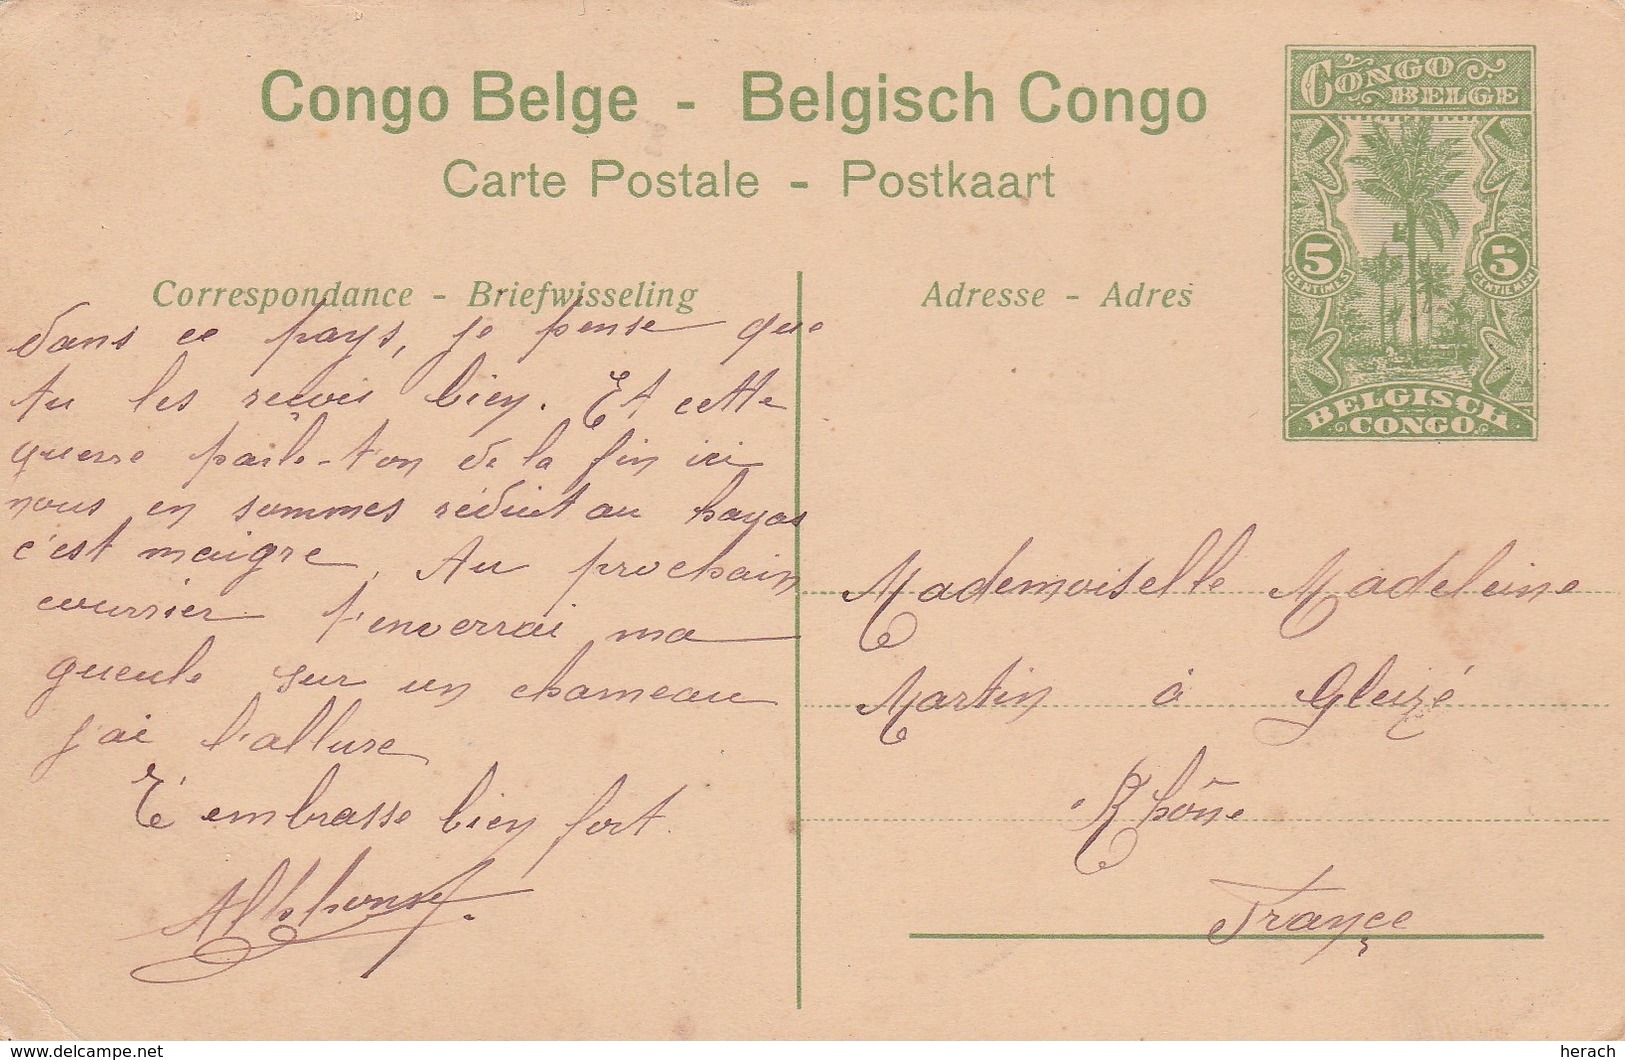 Congo Belge - Belgisch Congo
Carte Postale - Postkaart
CONGO BELGE
5 5
CENTIMES CENTIEMEN
BELGISCH
CONGO
Correspondance - Briefwisseling
dans ce pays, je pense que
tu les recois bien. Et cette
guerre parle-t'on de la fin ici
nous en sommes réduit au
c'est maigre. Au prochain
courrier t'enverrai ma
gueule sur un chameau
j'ai l'allure
T'embrasse bien fort.
Alphonse
Adresse - Adres
Mademoiselle Madeleine
Martin à Gleizé
Rhône
France
www.delcampe.net
herach